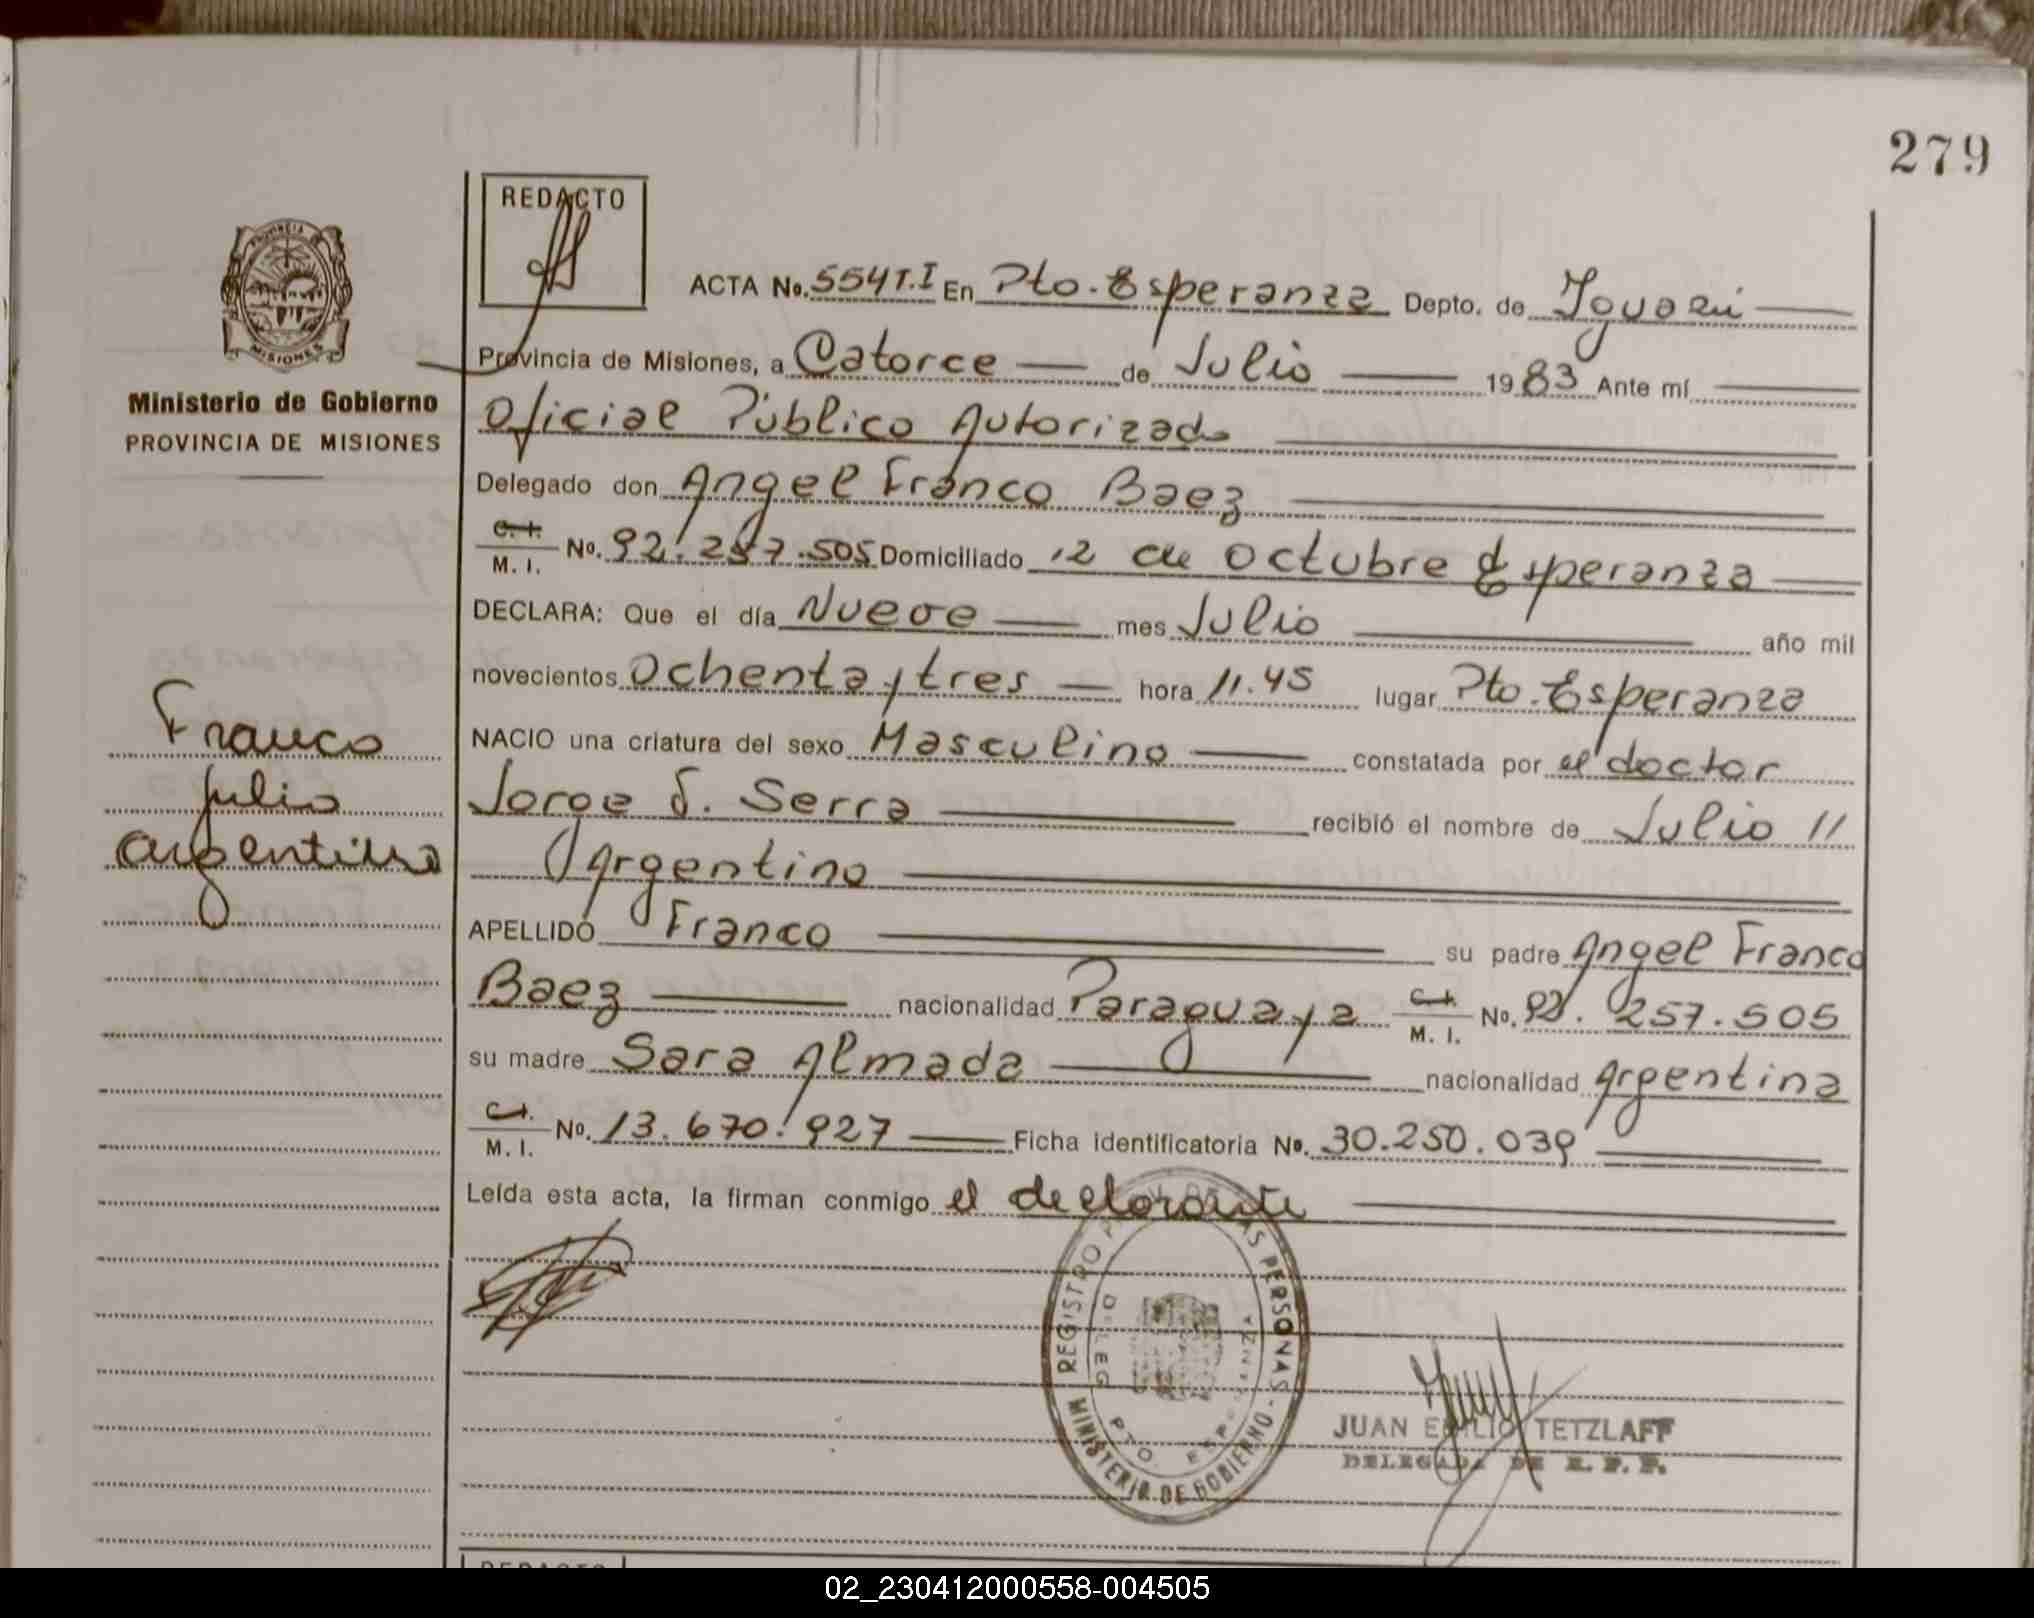 279
REDACTO
ACTA No. 554 T.I En Pto. Esperanza Depto. de Iguazú
Provincia de Misiones, a Catorce de Julio 1983 Ante mí
Oficial Público Autorizado
Delegado don Angel Franco Baez
C.I. M. I. No. 92.257.505 Domiciliado 12 de Octubre Esperanza
DECLARA: Que el día Nueve mes Julio año mil
novecientos Ochenta y tres hora 11.45 lugar Pto. Esperanza
NACIO una criatura del sexo Masculino constatada por el doctor
Jorge S. Serra recibió el nombre de Julio //
Argentino
APELLIDO Franco su padre Angel Franco
Baez nacionalidad Paraguaya C.I. M. I. No. 92.257.505
su madre Sara Almada nacionalidad Argentina
C.I. M. I. No. 13.670.927 Ficha identificatoria No. 30.250.039
Leída esta acta, la firman conmigo el declarante
PROVINCIA
MISIONES
Ministerio de Gobierno
PROVINCIA DE MISIONES
Franco
Julio
Argentino
REGISTRO LAS PERSONAS - MINISTERIO DE GOBIERNO -
DELEG. PTO. ESPERANZA
JUAN EMILIO TETZLAFF
DELEGADO DE R. P. P.
REDACTO
02_230412000558-004505